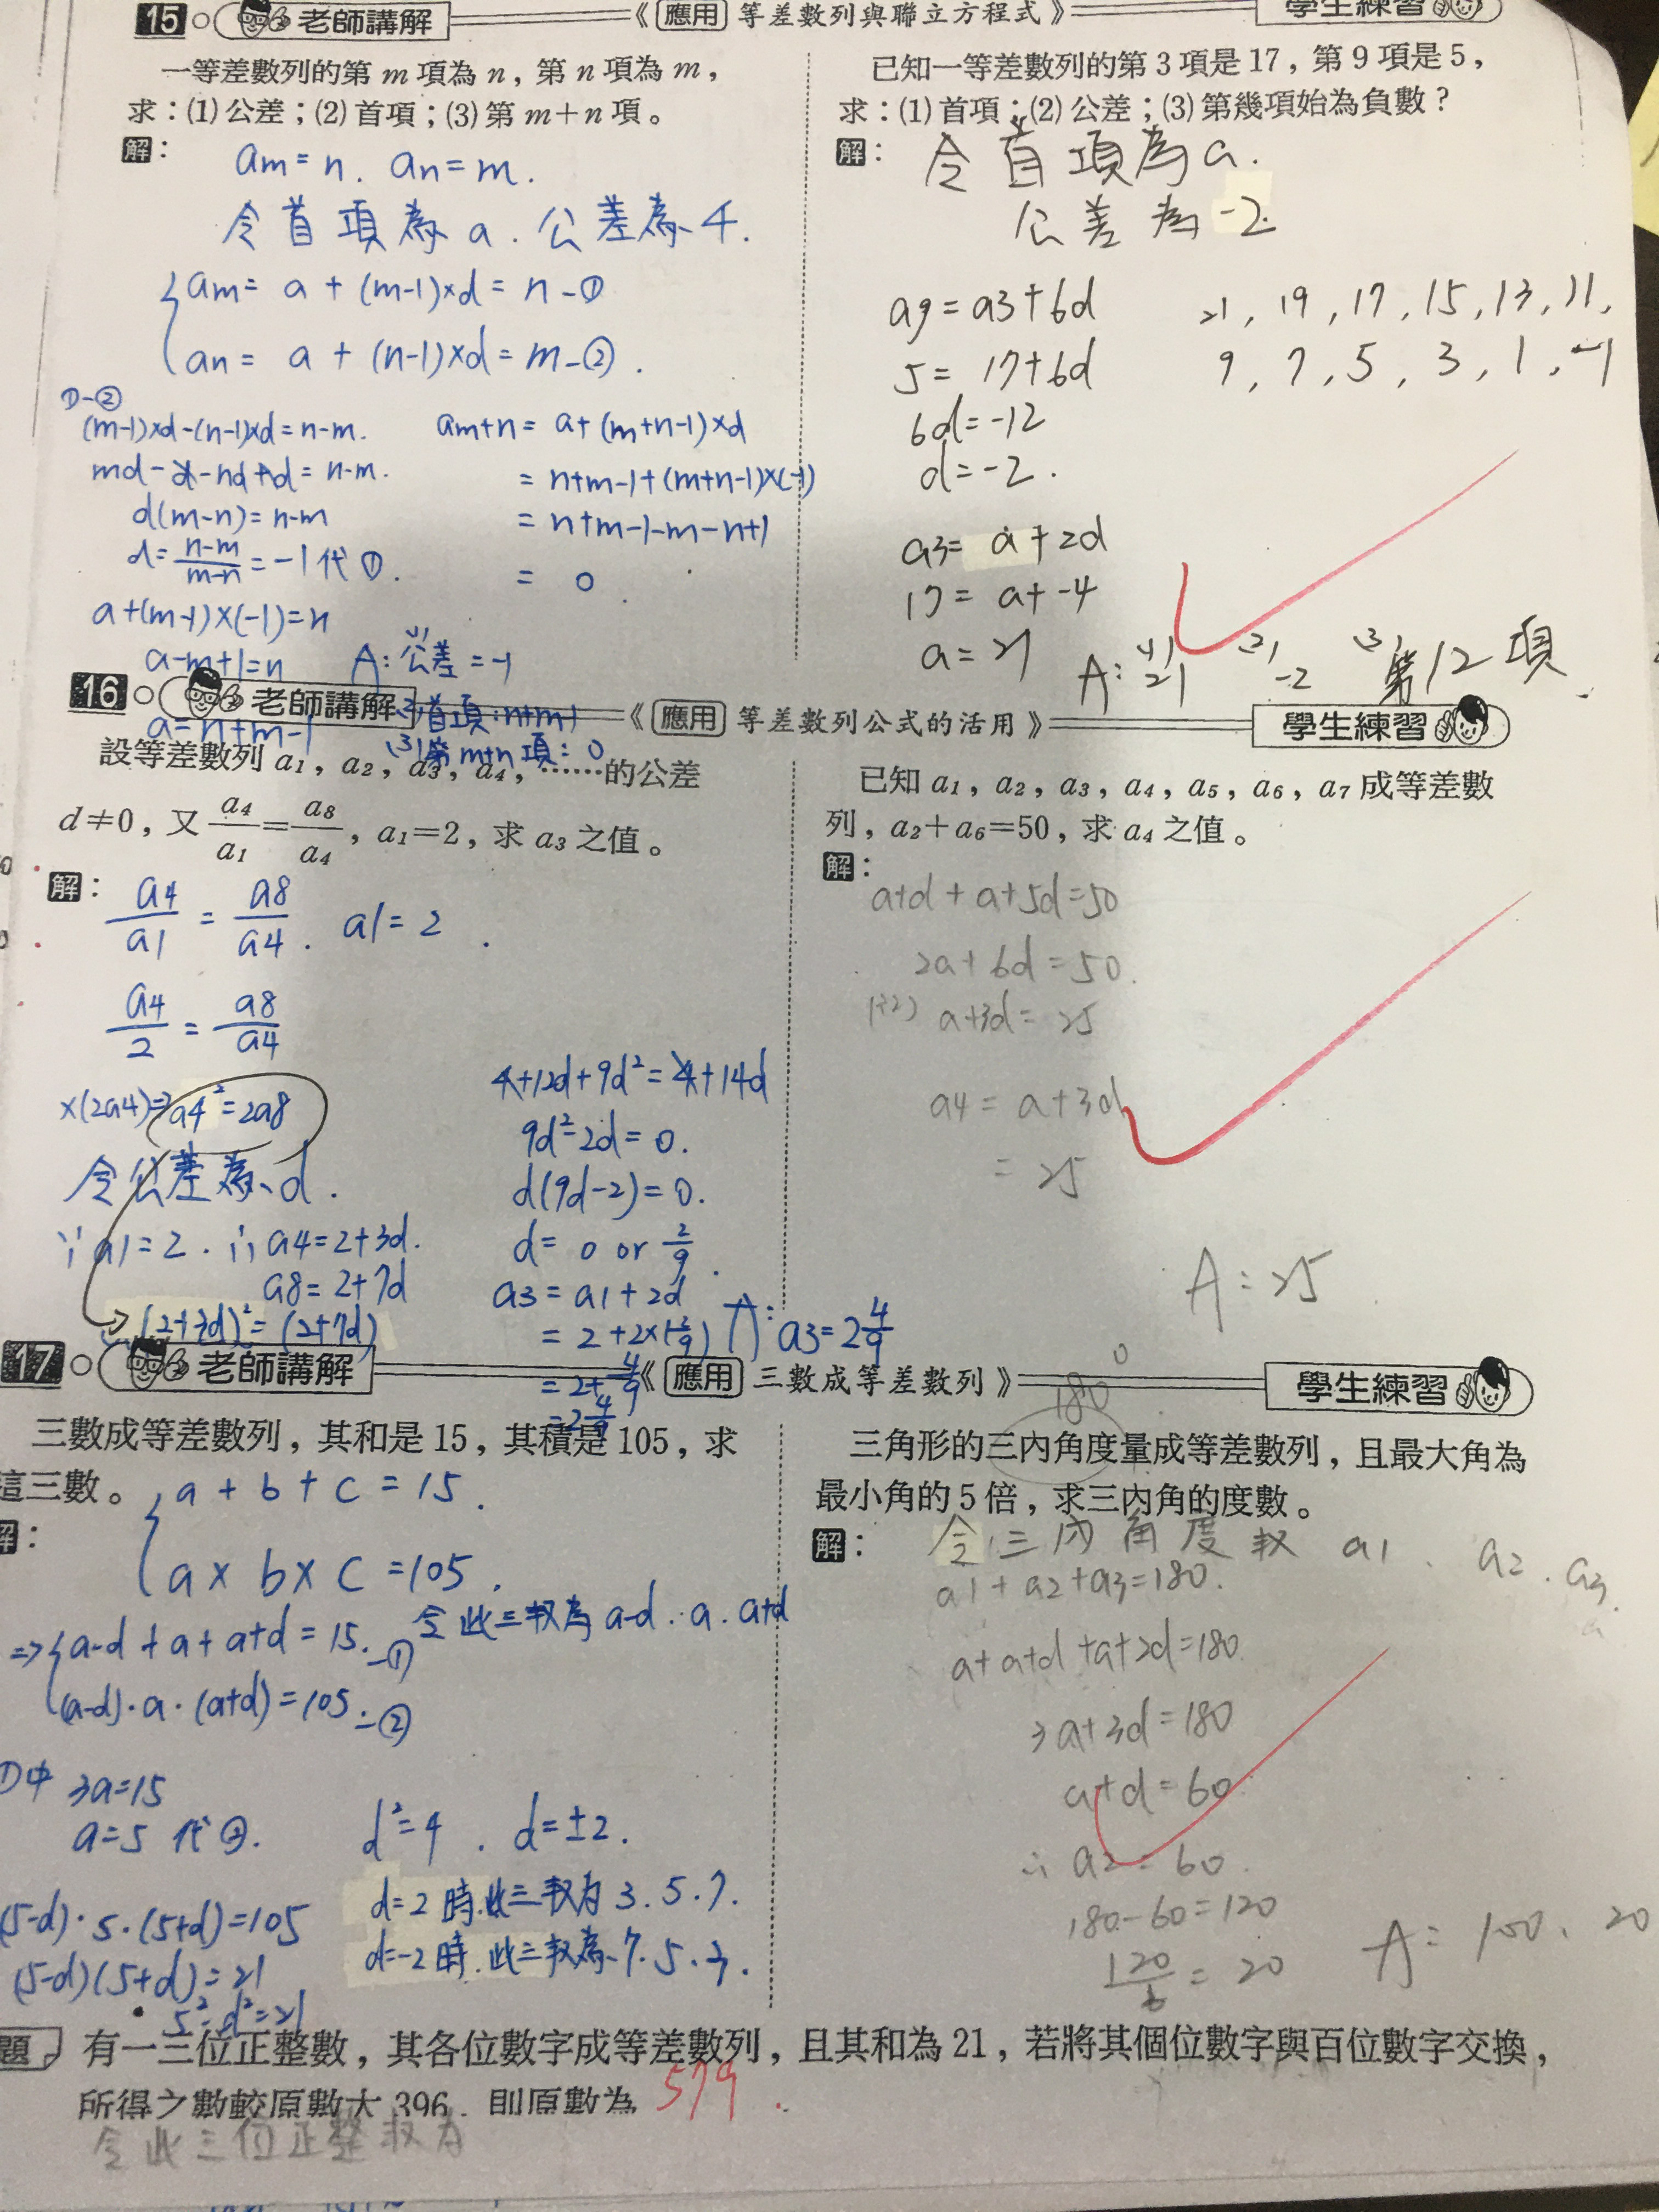 15 老師講解 《應用 等差數列與聯立方程式》 學生練習
一等差數列的第 m 項為 n，第 n 項為 m，
求：(1) 公差；(2) 首項；(3) 第 m+n 項。
解：
am = n. an = m.
令首項為 a. 公差為 d.
am = a + (m-1)×d = n -①
an = a + (n-1)×d = m -②.
①-②
(m-1)×d-(n-1)×d = n-m.
md-d-nd+d = n-m.
d(m-n) = n-m
d = n-m/m-n = -1 代①.
a+(m-1)×(-1) = n
a-m+1 = n
a = n+m-1
am+n = a+(m+n-1)×d
= n+m-1+(m+n-1)×(-1)
= n+m-1-m-n+1
= 0
A: (1) 公差 = -1
(2) 首項: n+m-1
(3) 第 m+n 項: 0
已知一等差數列的第 3 項是 17，第 9 項是 5，
求：(1) 首項；(2) 公差；(3) 第幾項始為負數？
解：
令首項為 a.
公差為 -2.
a9 = a3+6d
5 = 17+6d
6d = -12
d = -2.
21, 19, 17, 15, 13, 11,
9, 7, 5, 3, 1, -1
a3 = a+2d
17 = a+-4
a = 21
A: (1) 21 (2) -2 (3) 第12項.
16 老師講解 《應用 等差數列公式的活用》 學生練習
設等差數列 a1，a2，a3，a4，……的公差
d≠0，又 a4/a1=a8/a4，a1=2，求 a3 之值。
解：
a4/a1 = a8/a4. a1 = 2.
a4/2 = a8/a4
×(2a4)⇒ a4² = 2a8
令公差為 d.
∵ a1 = 2. ∴ a4 = 2+3d.
a8 = 2+7d
→ (2+3d)² = (2+7d)
4+12d+9d² = 4+14d
9d²-2d = 0.
d(9d-2) = 0.
d = 0 or 2/9.
a3 = a1+2d
= 2+2×(2/9)
= 2+4/9
= 2 4/9
A: a3 = 2 4/9
已知 a1，a2，a3，a4，a5，a6，a7 成等差數
列，a2+a6=50，求 a4 之值。
解：
a+d + a+5d = 50
2a+6d = 50.
(÷2) a+3d = 25
a4 = a+3d
= 25
A: 25
17 老師講解 《應用 三數成等差數列》 學生練習
三數成等差數列，其和是 15，其積是 105，求
這三數。
解：
a + b + c = 15.
a × b × c = 105.
令此三數為 a-d. a. a+d
⇒ a-d + a + a+d = 15. -①
(a-d)·a·(a+d) = 105 -②
①中 3a = 15
a = 5 代②.
(5-d)·5·(5+d) = 105
(5-d)(5+d) = 21
5²-d² = 21
d² = 4. d = ±2.
d=2 時. 此三數為 3.5.7.
d=-2 時. 此三數為 7.5.3.
180
三角形的三內角度量成等差數列，且最大角為
最小角的 5 倍，求三內角的度數。
解：
令三內角度數 a1、a2. a3.
a1+a2+a3 = 180.
a+a+d+a+2d = 180
3a+3d = 180
a+d = 60
∴ a2 = 60.
180-60 = 120
120/6 = 20
A: 100、20
題 有一三位正整數，其各位數字成等差數列，且其和為 21，若將其個位數字與百位數字交換，
所得之數較原數大 396，則原數為 579.
令此三位正整數為